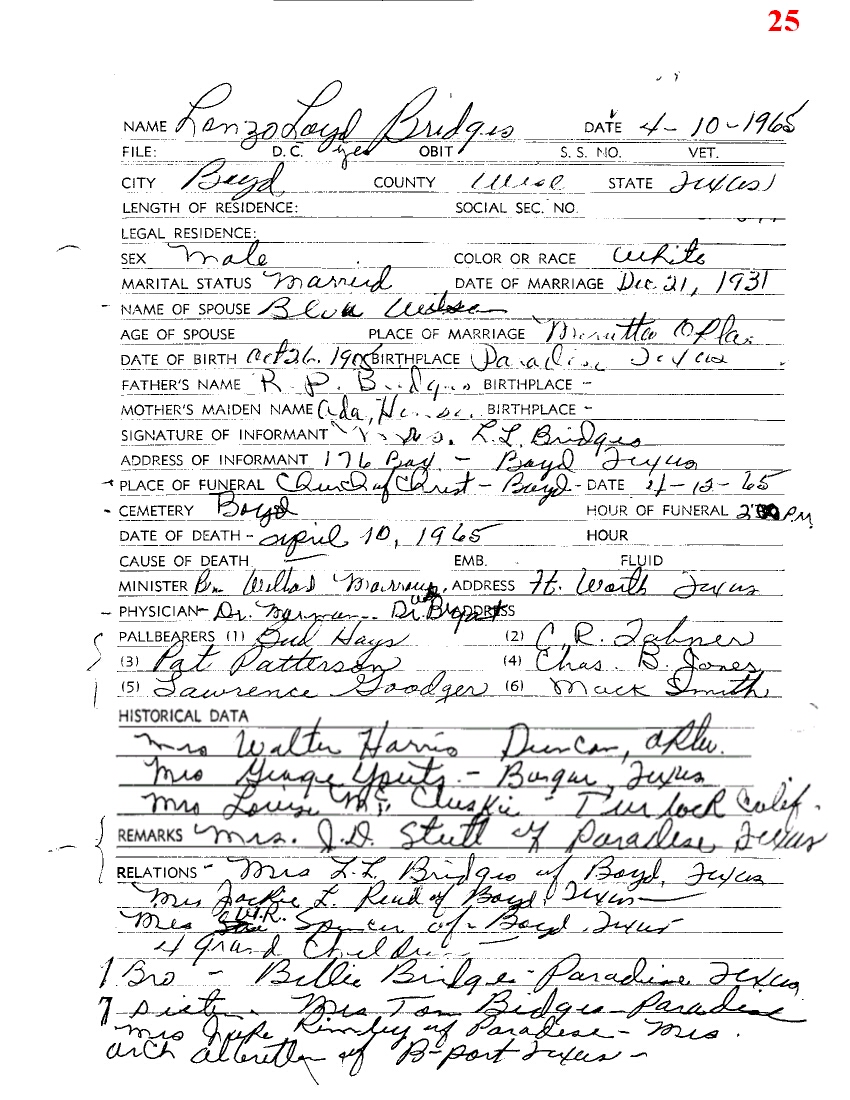 25
NAME Lonzo Loyd Bridges DATE 4-10-1965
FILE: D.C. yes OBIT S. S. NO. VET.
CITY Boyd COUNTY Wise STATE Texas
LENGTH OF RESIDENCE: SOCIAL SEC. NO.
LEGAL RESIDENCE:
SEX Male COLOR OR RACE White
MARITAL STATUS Married DATE OF MARRIAGE Dec. 21, 1931
NAME OF SPOUSE
AGE OF SPOUSE PLACE OF MARRIAGE Okla.
DATE OF BIRTH Oct 26. BIRTHPLACE Paradise Texas
FATHER'S NAME R. P. Bridges BIRTHPLACE -
MOTHER'S MAIDEN NAME Ada, BIRTHPLACE -
SIGNATURE OF INFORMANT Mrs. L.L. Bridges
ADDRESS OF INFORMANT 176 Box - Boyd Texas
PLACE OF FUNERAL Church of Christ - Boyd - DATE 4-12-65
CEMETERY Boyd HOUR OF FUNERAL 2:00 P.M.
DATE OF DEATH - April 10, 1965 HOUR
CAUSE OF DEATH EMB. FLUID
MINISTER Bro. Willard ADDRESS Ft. Worth Texas
PHYSICIAN - Dr. ADDRESS
PALLBEARERS (1) Bud Hays (2) C. R.
(3) Pat Patterson (4) Chas. B. Jones
(5) Lawrence Goodger (6) Mack Smith
HISTORICAL DATA
Mrs Walter Harris Duncan, Okla.
Mrs - Borger, Texas
Mrs Louise Mc Cluskie - Turlock Calif.
REMARKS Mrs. J.D. of Paradise, Texas
RELATIONS - Mrs L.L. Bridges of Boyd, Texas
Mrs Jackie L. Read of Boyd, Texas
Mrs W.R. Spencer of - Boyd, Texas
4 Grand Children
1 Bro - Billie Bridges - Paradise Texas
7 Sisters Mrs Tom Bridges - Paradise
Mrs of Paradise - Mrs.
Arch of B-port Texas -